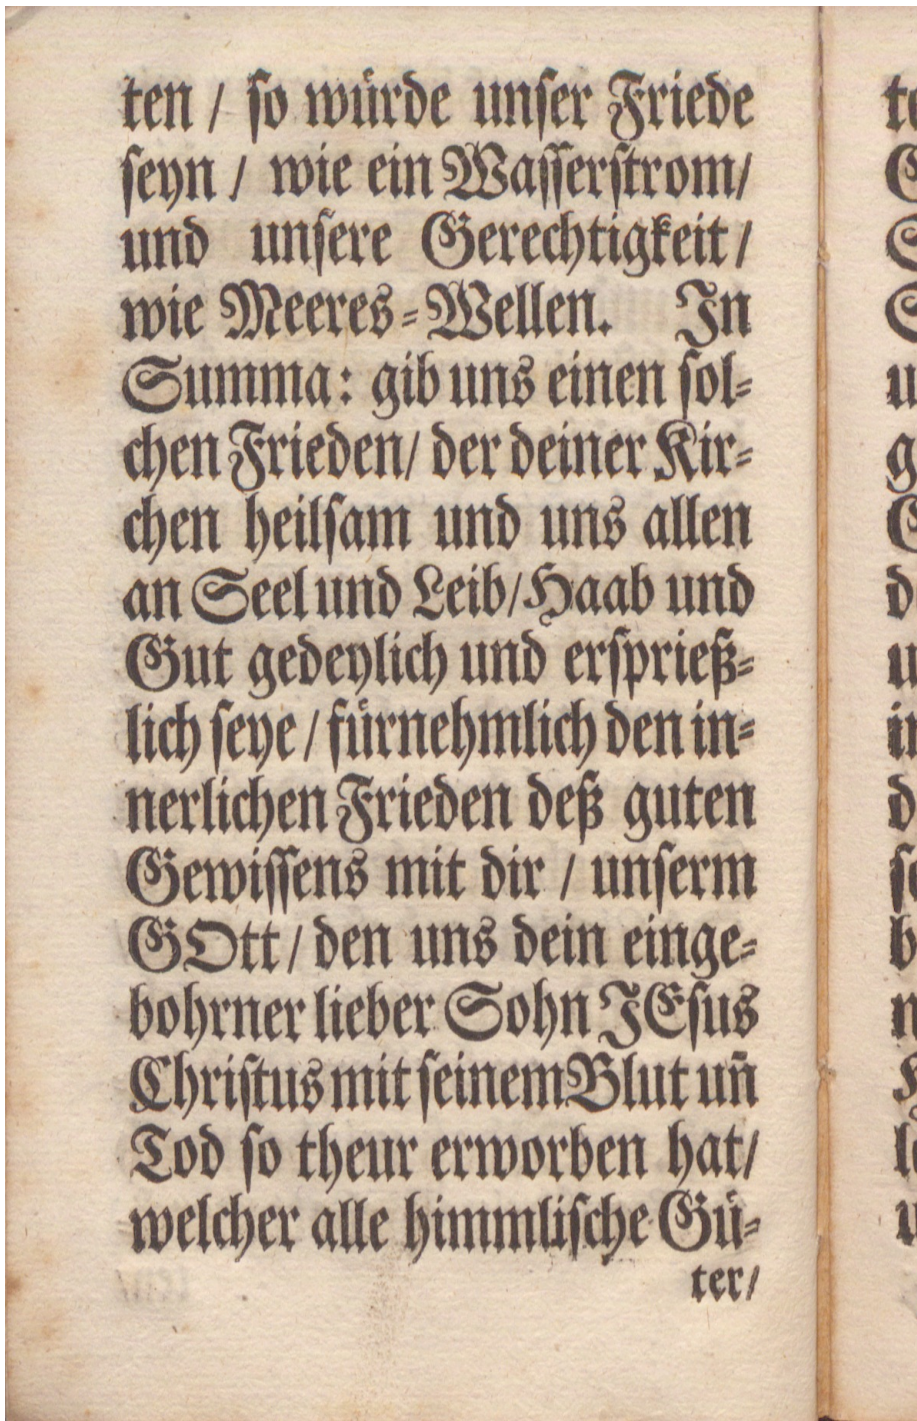 ten / ſo wuͤrde unſer Friede
ſeyn / wie ein Waſſerſtrom/
und unſere Gerechtigkeit /
wie Meeres-Wellen. In
Summa: gib uns einen ſol-
chen Frieden/ der deiner Kir-
chen heilſam und uns allen
an Seel und Leib/Haab und
Gut gedeylich und erſprieß-
lich ſeye / fuͤrnehmlich den in-
nerlichen Frieden deß guten
Gewiſſens mit dir / unſerm
GOtt / den uns dein einge-
bohrner lieber Sohn JEſus
Chriſtus mit ſeinem Blut uñ
Tod ſo theur erworben hat/
welcher alle himmliſche Guͤ-
ter/